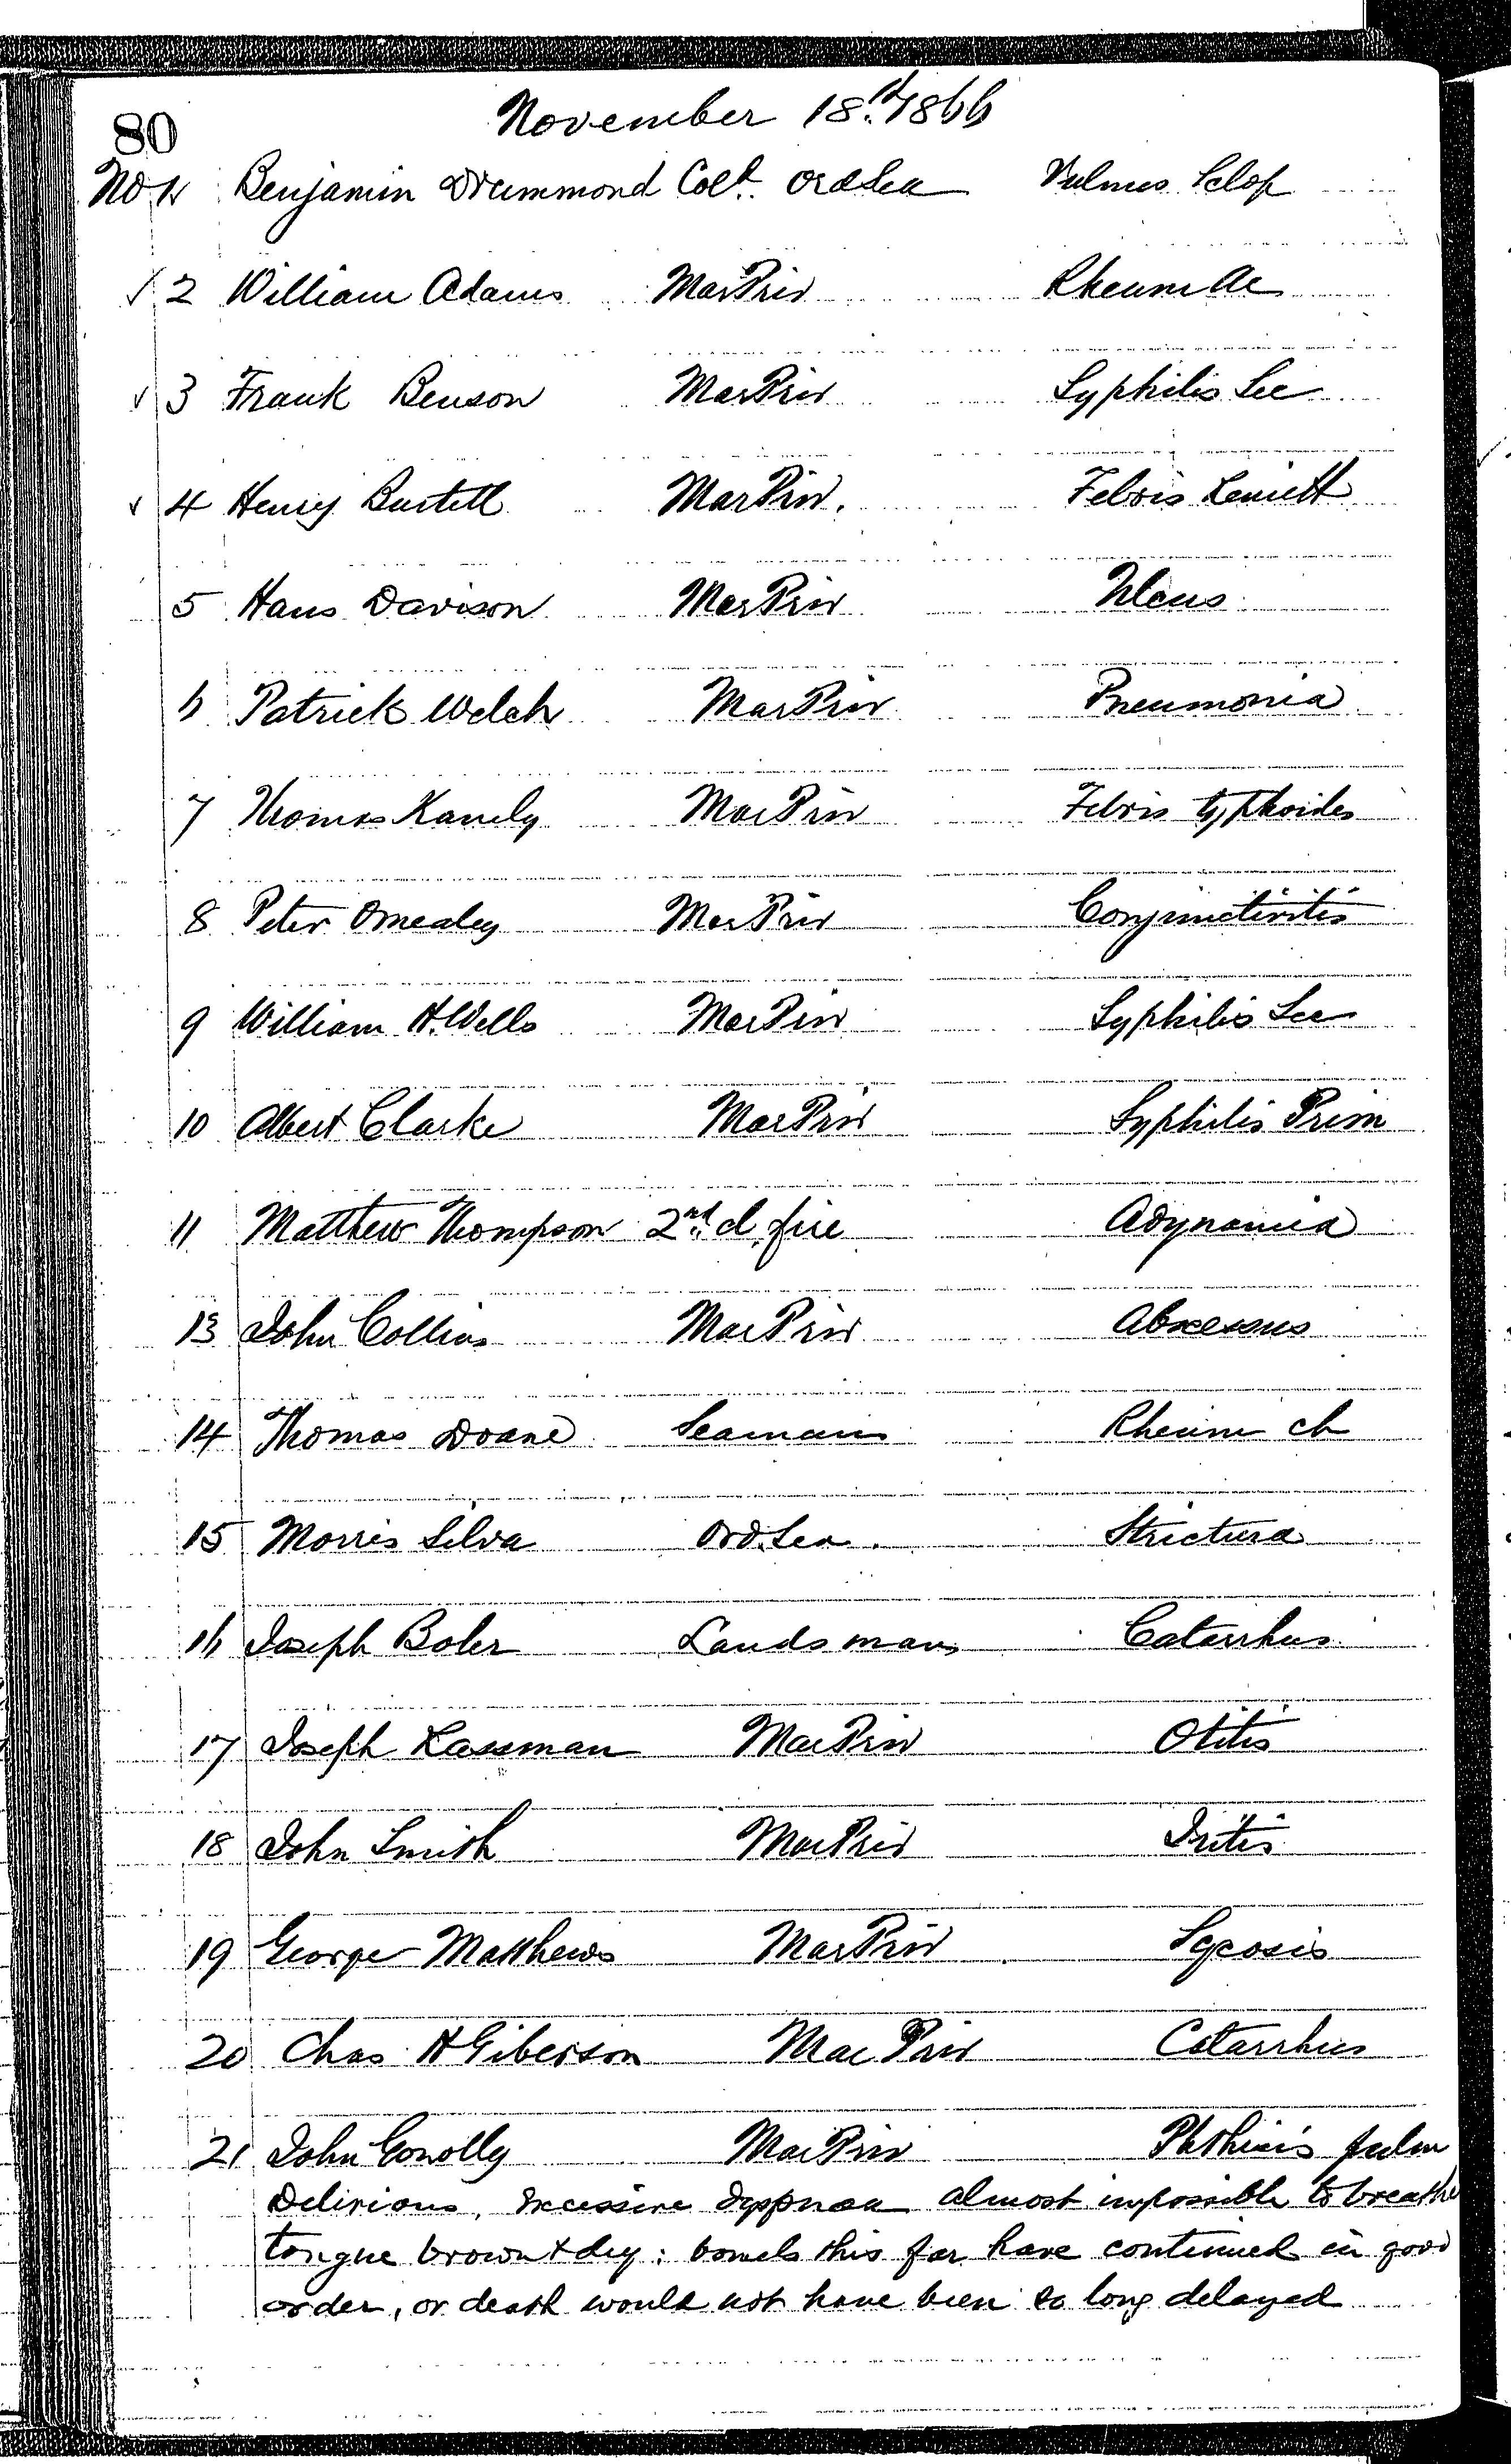 80
November 18th 1866
No 1 Benjamin Drummond Cold. Ord Sea Vulnus Sclop
✓ 2 William Adams Mar Priv Rheum Ac
✓ 3 Frank Benson Mar Priv Syphilis Sec
✓ 4 Henry Burtell Mar Priv. Febris Remitt
5 Hans Davison Mar Priv Ulcus
6 Patrick Welch Mar Priv Pneumonia
7 Thomas Kanely Mar Priv Febris typhoides
8 Peter Omealey Mar Priv Conjunctivitis
9 William H. Wells Mar Priv Syphilis Sec
10 Albert Clarke Mar Priv Syphilis Prim
11 Matthew Thompson 2nd cl fire Adynamia
13 John Collins Mar Priv Abscessus
14 Thomas Doane Seaman Rheum ch
15 Morris Silva Ord. Sea. Strictura
16 Joseph Boler Landsman Catarrhus
17 Joseph Kassman Mar Priv Otitis
18 John Smith Mar Priv Iritis
19 George Matthews Mar Priv Sycosis
20 Chas H Giberson Mar Priv Catarrhus
21 John Conolly Mar Priv Phthisis pulm
Delirious, excessive dyspnoea almost impossible to breathe
tongue brown & dry: bowels this far have continued in good
order, or death would not have been so long delayed